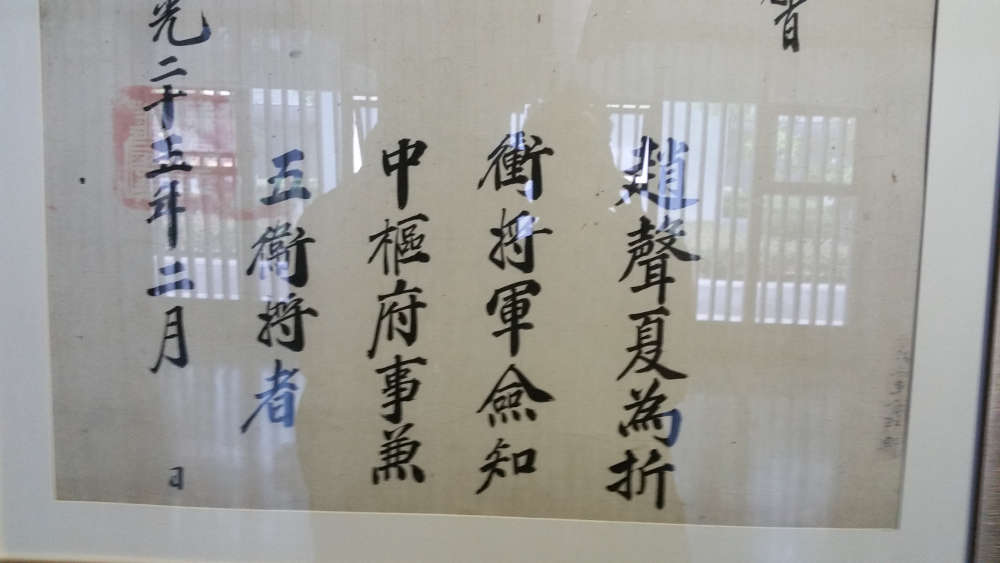 旨
趙聲夏為折
衝将軍僉知
中樞府事兼
五衛将者
光二十五年二月 日